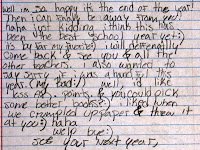 well im so happy it's the end of the year!
Then i can finally be away from you!
haha just kidding i think this has
been the best school year yet!:)
its by far my favorite:) i will deffenatlly
come back & see you & all the
other teachers. i also wanted to
say sorry if i was a handful this
year. (my bad!) well, id like
less AR. points, & you could pick
some better books:) i liked when
we crumpled up paper & threw it
at you:) haha
well bye:)
see you next year,